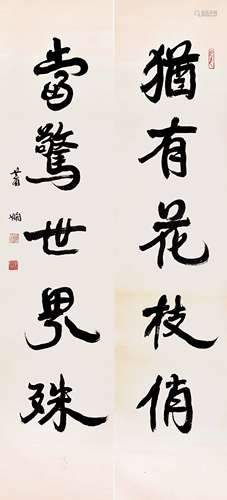 猶有花枝俏
當驚世界殊
蕭嫻